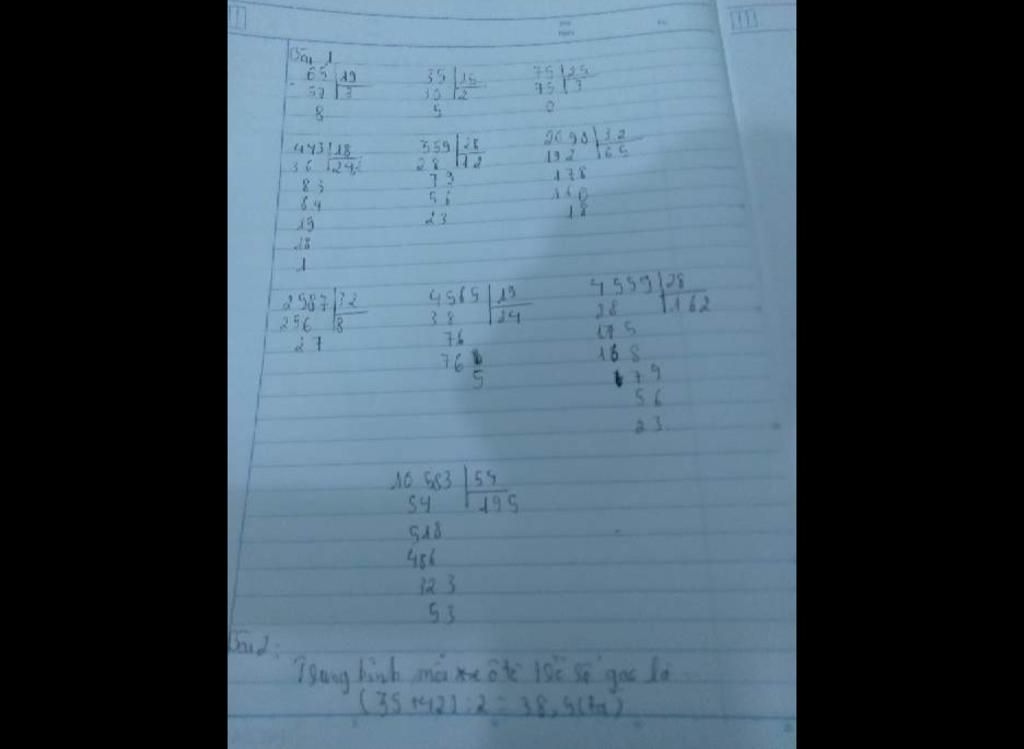 Bài 1
65 | 19 35 | 15 75 | 25
57 | 3 30 | 2 75 | 3
8 5 0
443 | 18 359 | 28 2098 | 32
36 | 24 28 | 12 192 | 65
83 79 178
84 56 160
19 23 18
18
1
2587 | 32 4565 | 19 4559 | 28
256 | 8 38 | 24 28 | 162
27 76 175
76 168
5 79
56
23
10 583 | 54
54 | 195
518
486
323
53
Bài 2:
Trung bình mỗi xe ô tô số gạo là
(35 + 42) : 2 = 38,5 (tạ)